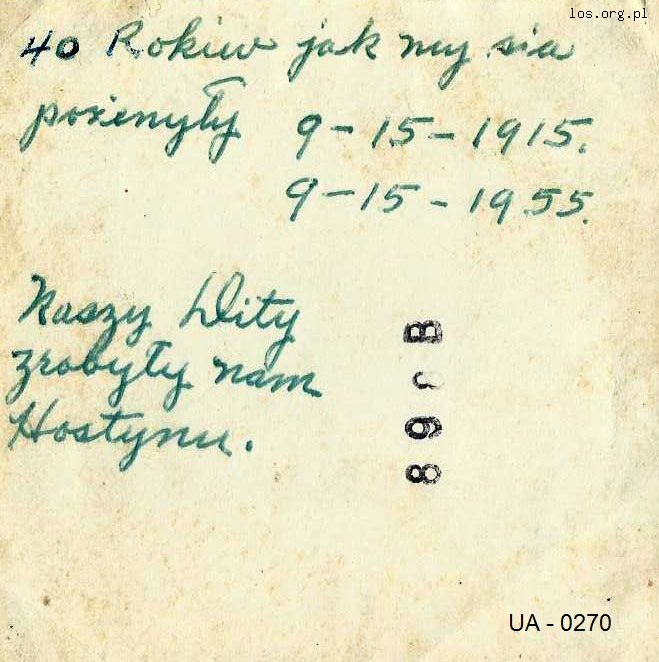 los.org.pl
40 Rokiw jak my sia
poženyły 9-15-1915.
9-15-1955.
Naszy Dity
zrobyły nam
Hostynu.
B
89
UA - 0270